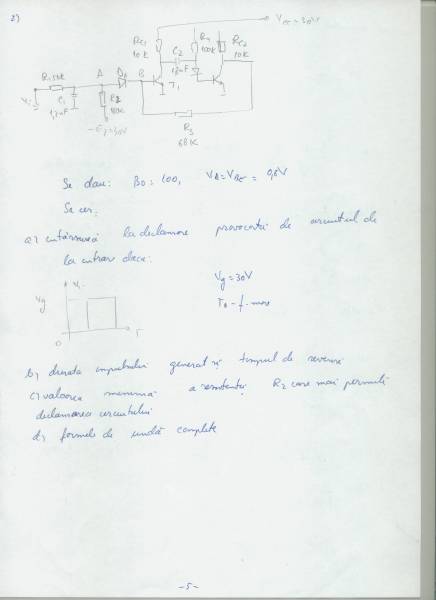 2)
VCC = 30V
RC1 10K
C2 1,8nF
R4 100K
RC2 10K
R1 10K
A
D1
B
T1
C1 1,2nF
R2
-E2=30V
R3 68K
Se dau: β0 = 100, VD=VBE = 0,6V
Se cer:
a) întârzierea la declanșare provocată de circuitul de
la intrare dacă:
Vg = 30V
T0 - f. mare
Vi
Vg
0
T
b) durata impulsului generat și timpul de revenire
c) valoarea minimă a rezistenței R2 care mai permite
declanșarea circuitului
d) formele de undă complete
-5-